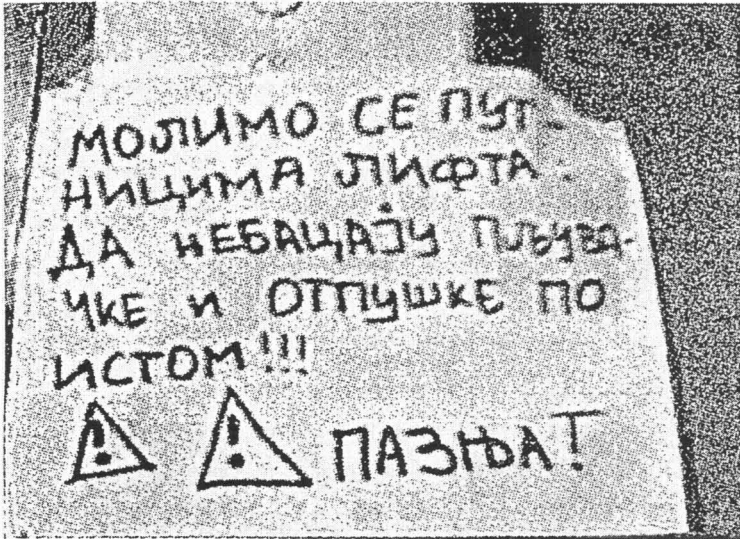 МОЛИМО СЕ ПУТ-
НИЦИМА ЛИФТА
ДА НЕБАЦАЈУ ПЉУВА-
ЧКЕ И ОТПУШКЕ ПО
ИСТОМ!!!
! ! ПАЗЊА!